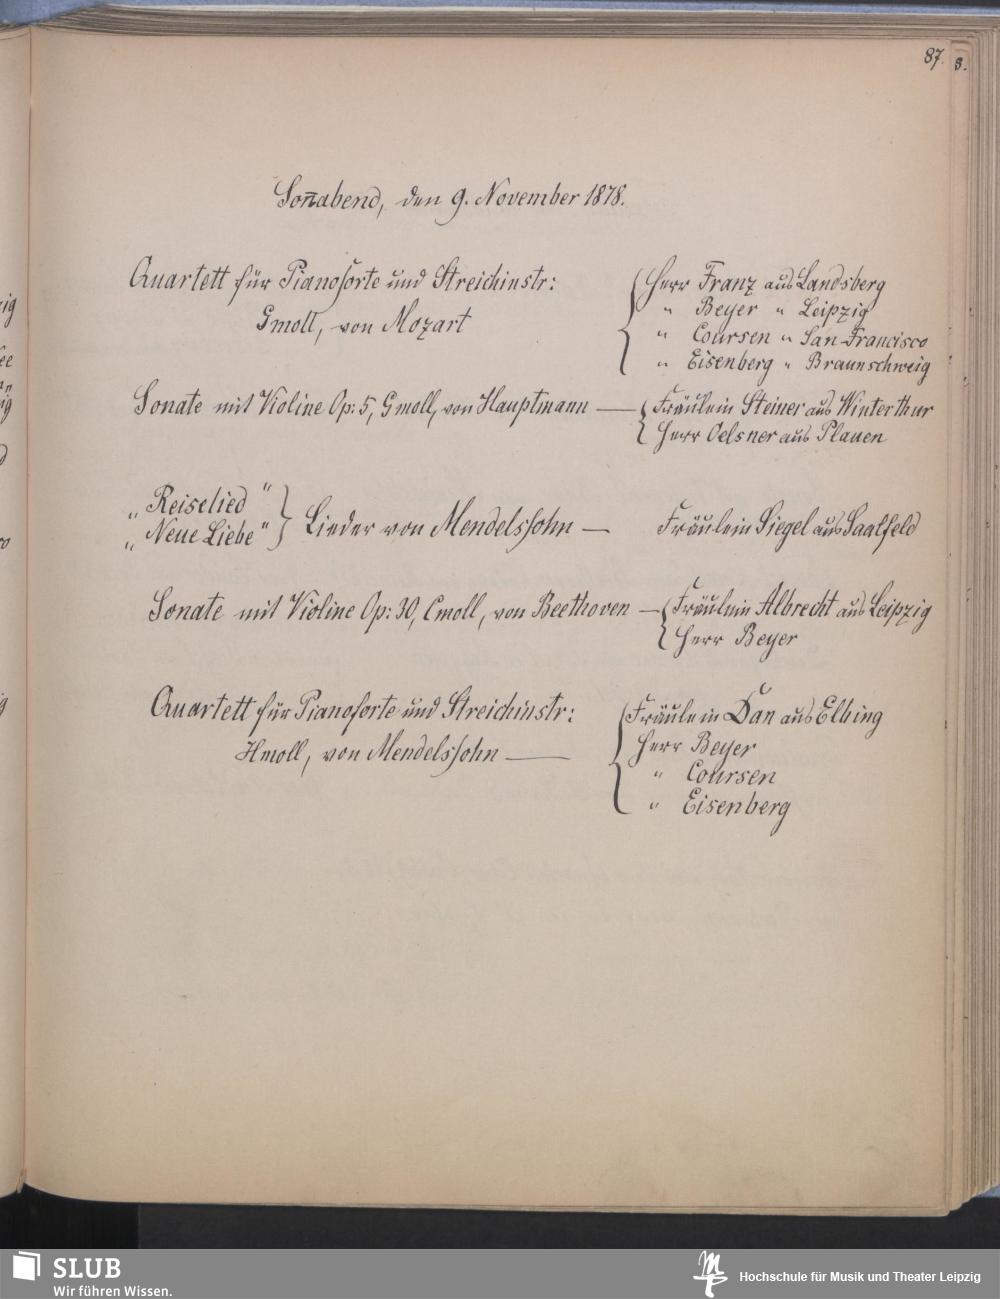 87.
8.
Son̄abend, den 9. November 1878.
Quartett für Pianoforte und Streichinstr:
Gmoll, von Mozart
Herr Franz aus Landsberg
" Beyer " Leipzig
" Coursen " San Francisco
" Eisenberg " Braunschweig
Sonate mit Violine Op: 5, Gmoll, von Hauptmann — Fräulein Steiner aus Winterthur
Herr Oelsner aus Plauen
„Reiselied"
„Neue Liebe" } Lieder von Mendelssohn — Fräulein Siegel aus Saalfeld
Sonate mit Violine Op: 30, Cmoll, von Beethoven — Fräulein Albrecht aus Leipzig
Herr Beyer
Quartett für Pianoforte und Streichinstr:
Hmoll, von Mendelssohn —
Fräulein Dan aus Elbing
Herr Beyer
" Coursen
" Eisenberg
SLUB
Wir führen Wissen.
Hochschule für Musik und Theater Leipzig